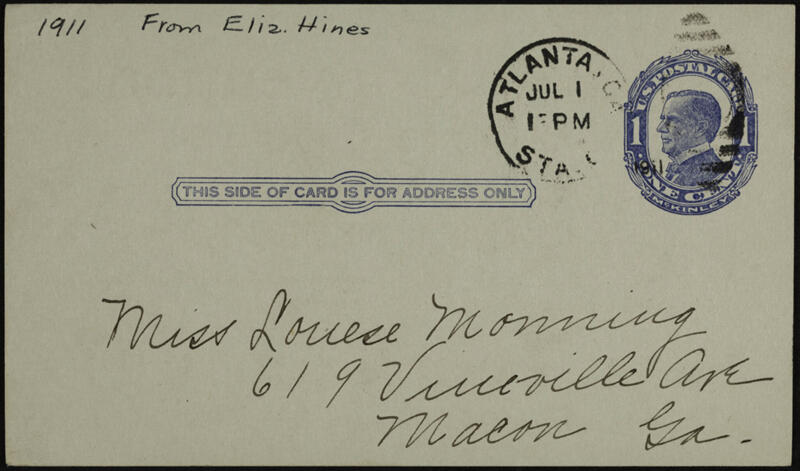 1911 From Eliz. Hines
ATLANTA, GA
JUL 1
PM
STA.
U.S. POSTAL CARD
1 1
ONE CENT
McKINLEY
THIS SIDE OF CARD IS FOR ADDRESS ONLY
Miss Louese Monning
619 Vineville Ave
Macon Ga.